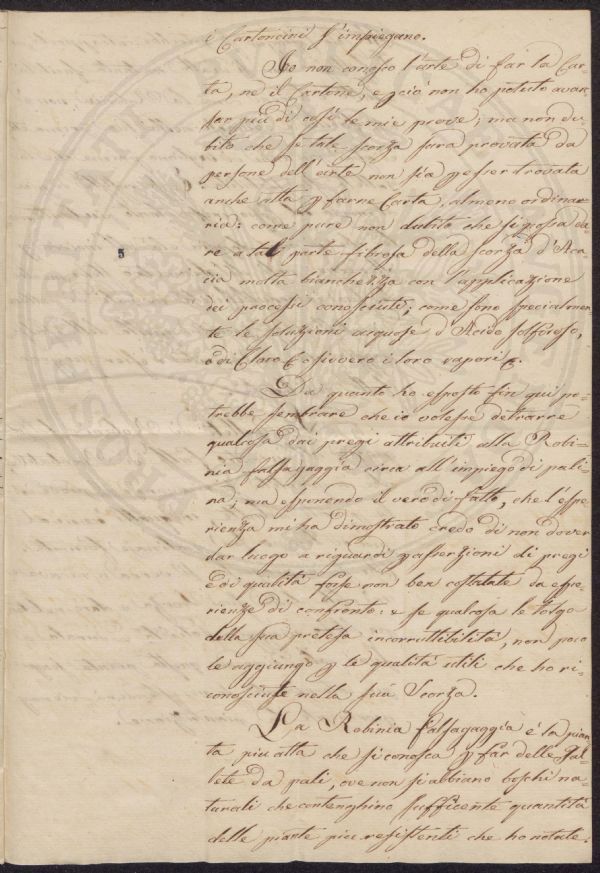 i Cartoncini s'impiegano.
Io non conosco l'arte di far la Car-
ta, nè il Cartone, e però non ho potuto avan-
zar più di così le mie prove; ma non du-
bito che se tale scorza sarà provata da
persone dell'arte non sia per esser trovata
anche atta p farne Carta, almeno ordina-
ria: come pure non dubito che si possa da-
re a tal parte fibrosa della scorza d'Aca-
cia molta bianchezza con l'applicazione
dei processi conosciuti; come sono specialmen-
te le soluzioni acquose d'Acido solforoso,
o di Cloro ossivvero i loro vapori.
Da quanto ho esposto fin qui po-
trebbe sembrare che io volessi detrarre
qualcosa dai pregi attribuiti alla Robi-
nia falsagaggia circa all'impiego di pali-
na; ma esponendo il vero di fatto, che l'espe-
rienza mi ha dimostrato credo di non dover
dar luogo a riguardi p asserzioni di pregi
e di qualità forse non ben costatate da espe-
rienze di confronto: e se qualcosa le tolgo
della sua pretesa incorruttibilità, non poco
le aggiungo p le qualità utili che ho ri-
conosciute nella sua Scorza.
La Robinia falsagaggia è la pian-
ta più atta che si conosca p far delle Pal-
lete da pali, ove non si abbiano boschi na-
turali che contenghino sufficente quantità
delle piante più resistenti che ho notate.
PROSPERITATI